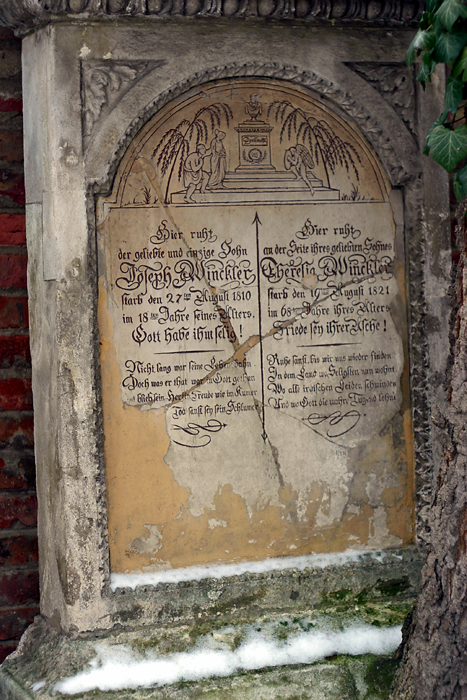 Hier ruht
der geliebte und einzige Sohn
Joseph Winckler
starb den 27ten August 1810
im 18ten Jahre seines Alters.
Gott habe ihn selig!
Nicht lang war seine Lebensbahn
Doch was er that war in Gott gethan
Tod sanft sey sein Schlumer
Hier ruht
an der Seite ihres geliebten Sohnes
Theresia Winckler
starb den 19ten August 1821
im 68ten Jahre ihres Alters
Friede sey ihrer Asche!
Ruhe sanft, bis wir uns wieder finden
In dem Land wo Seligkeit nur wohnt
Wo all irdischen Leiden schwinden
Und wo Gott die wahre Tugend lohnt